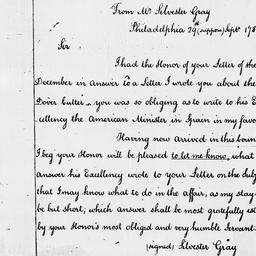 From Mr Silvester Gray
Philadelphia 29th (suppose) Sept. 178
Sir
I had the Honor of your Letter of the
December in Answer to a Letter I wrote you about the
Dover Cutter — you was so obliging as to write to his E
cellency the American Minister in Spain in my favo
Having now arrived in this
I beg your Honor will be pleased to let me know, what
answer his Excellency wrote to your Letter on the
that I may know what to do in the affair, as my stay
be but short; which answer shall be most gratefully
by your Honor's most obliged and very humble Servant
(signed) Silvester Gray